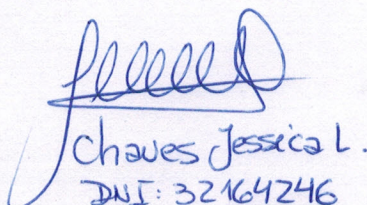 Chaves Jessica L.
DNI: 32164246